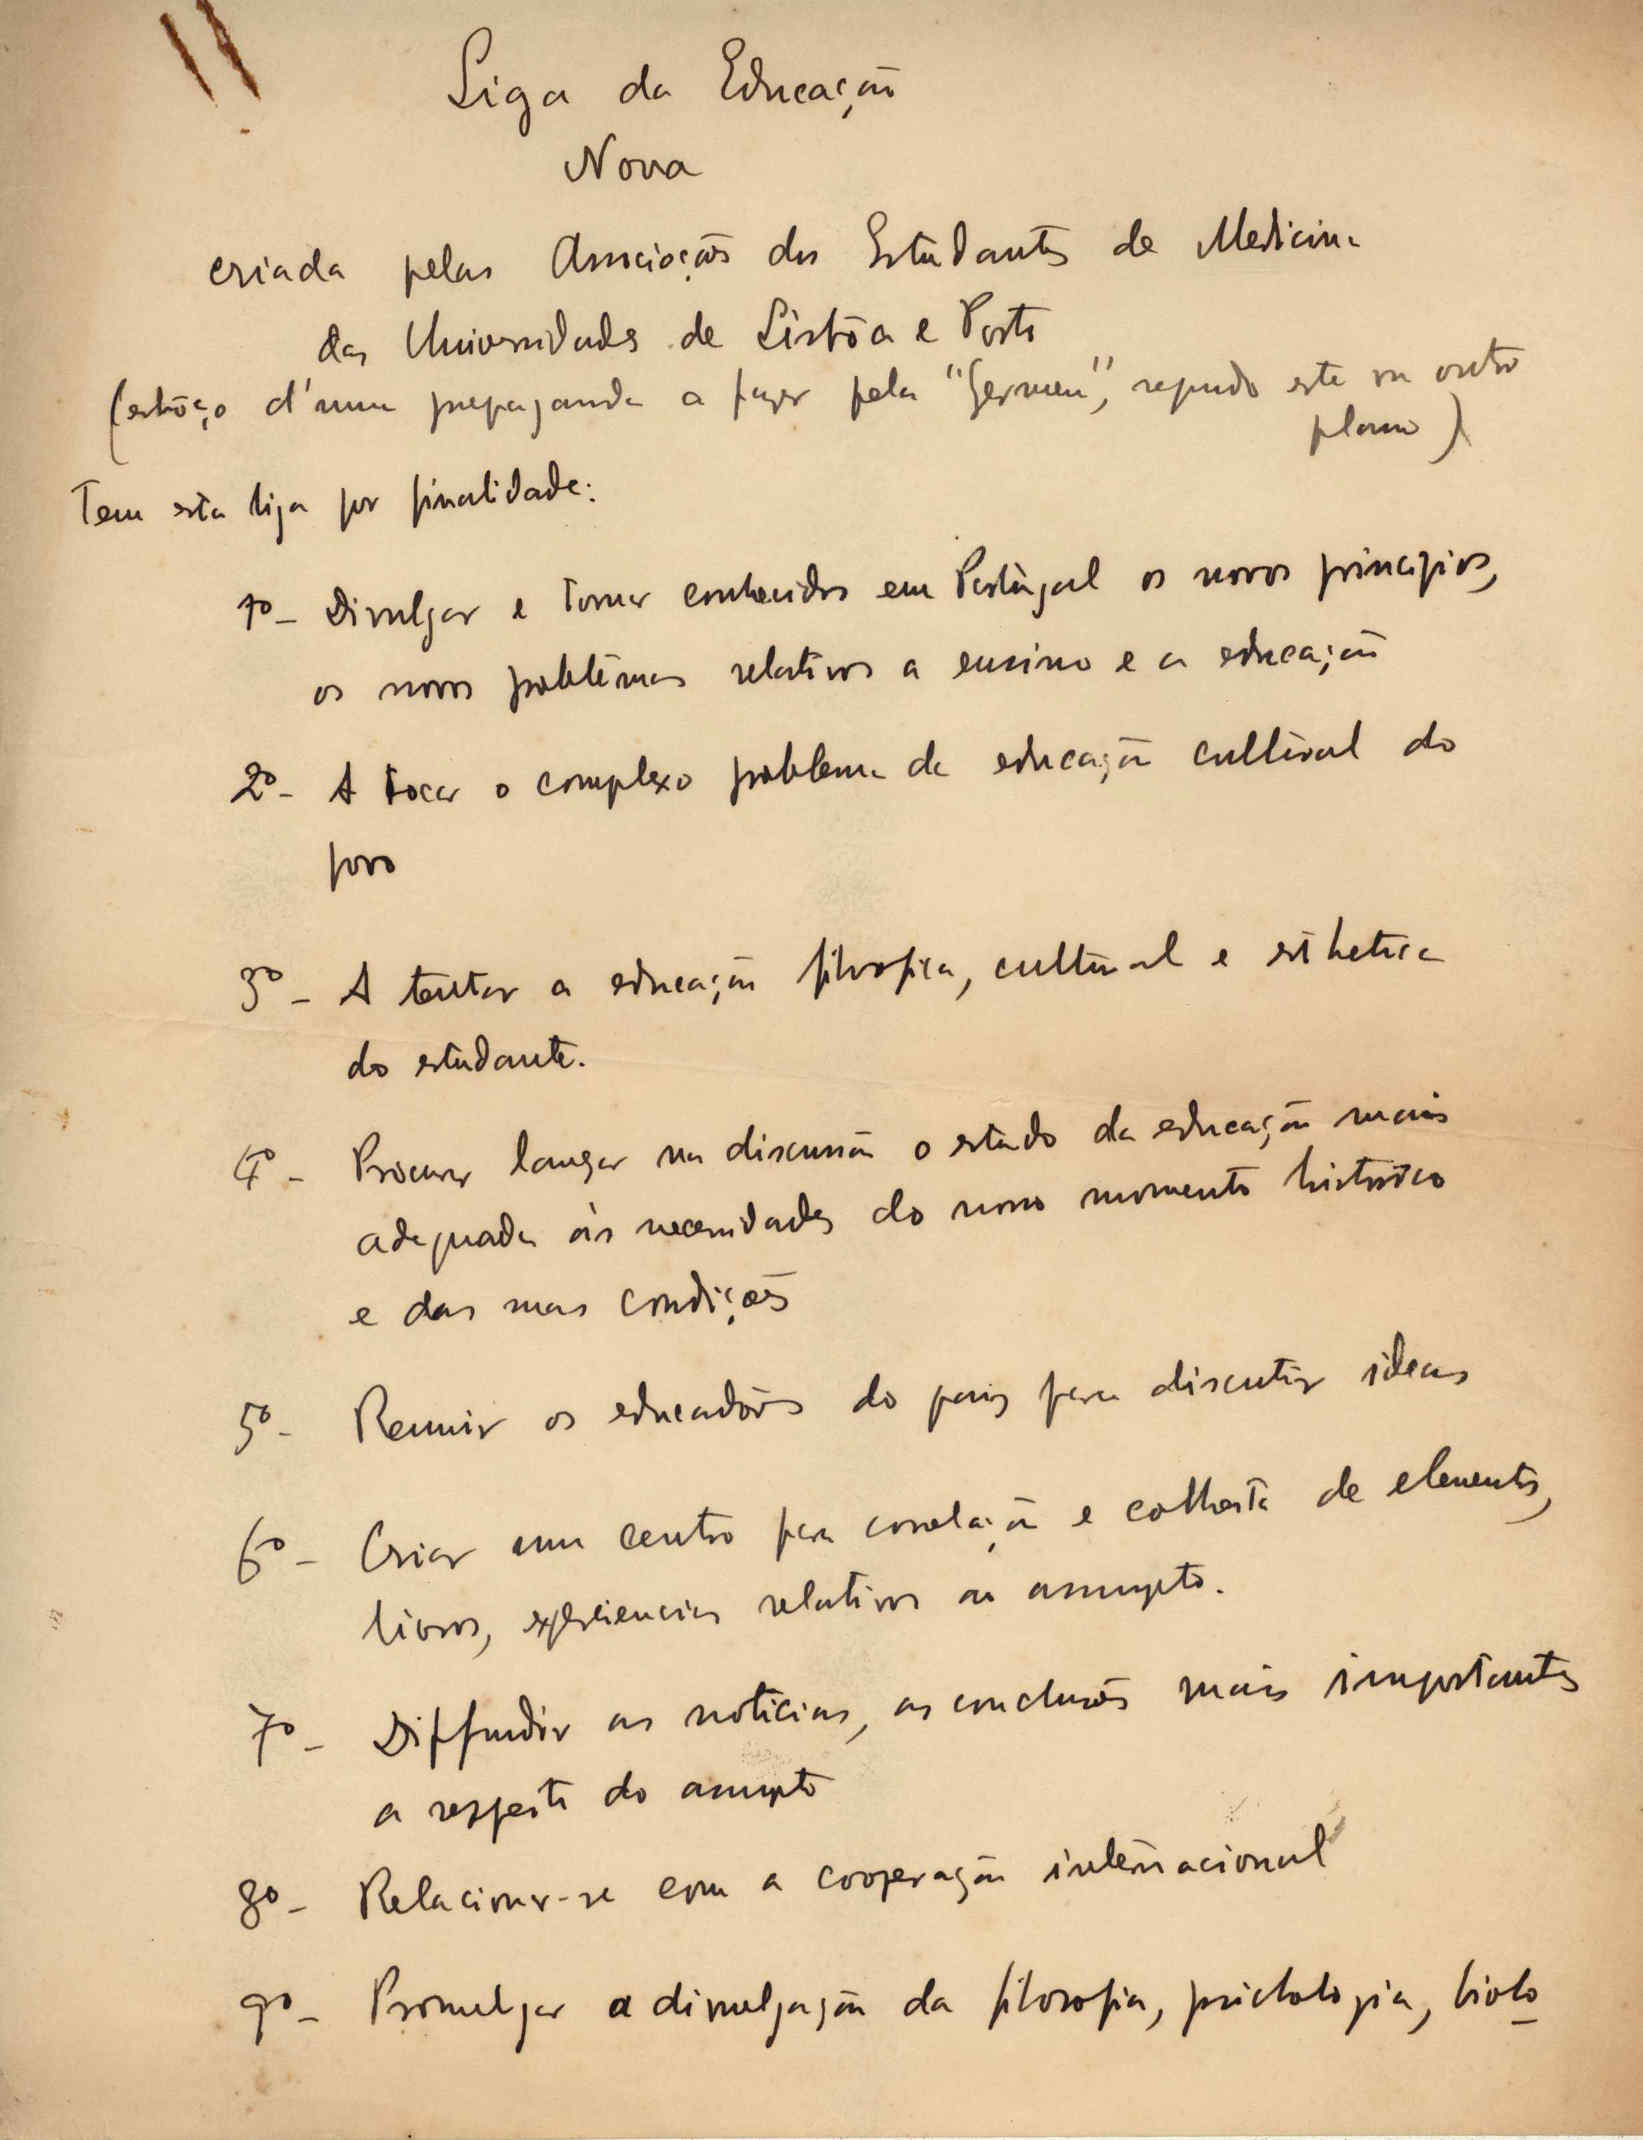 Liga da Educação
Nova
criada pelas Associações dos Estudantes de Medicina
das Universidades de Lisbôa e Porto
(esbôço d'uma propaganda a fazer pela "Germen", segundo este ou outro
plano)
Tem esta liga por finalidade:
1º - Divulgar e tornar conhecidos em Portugal os novos principios,
os novos problêmas relativos a ensino e a educação
2º - A focar o complexo problema da educação cultural do
povo
3º - A tentar a educação filosofica, cultural e esthetica
do estudante.
4º - Procurar lançar na discussão o estudo da educação mais
adequada às necessidades do novo momento histórico
e das suas condições
5º - Reunir os educadôres do paiz para discutir ideas
6º - Criar um centro para correlação e colheita de elementos,
livros, experiencias relativos ao assumpto.
7º - Diffundir as noticias, as conclusões mais importantes
a respeito do assumpto
8º - Relacionar-se com a cooperação internacional
9º - Promulgar a divulgação da filosofia, psichologia, biolo